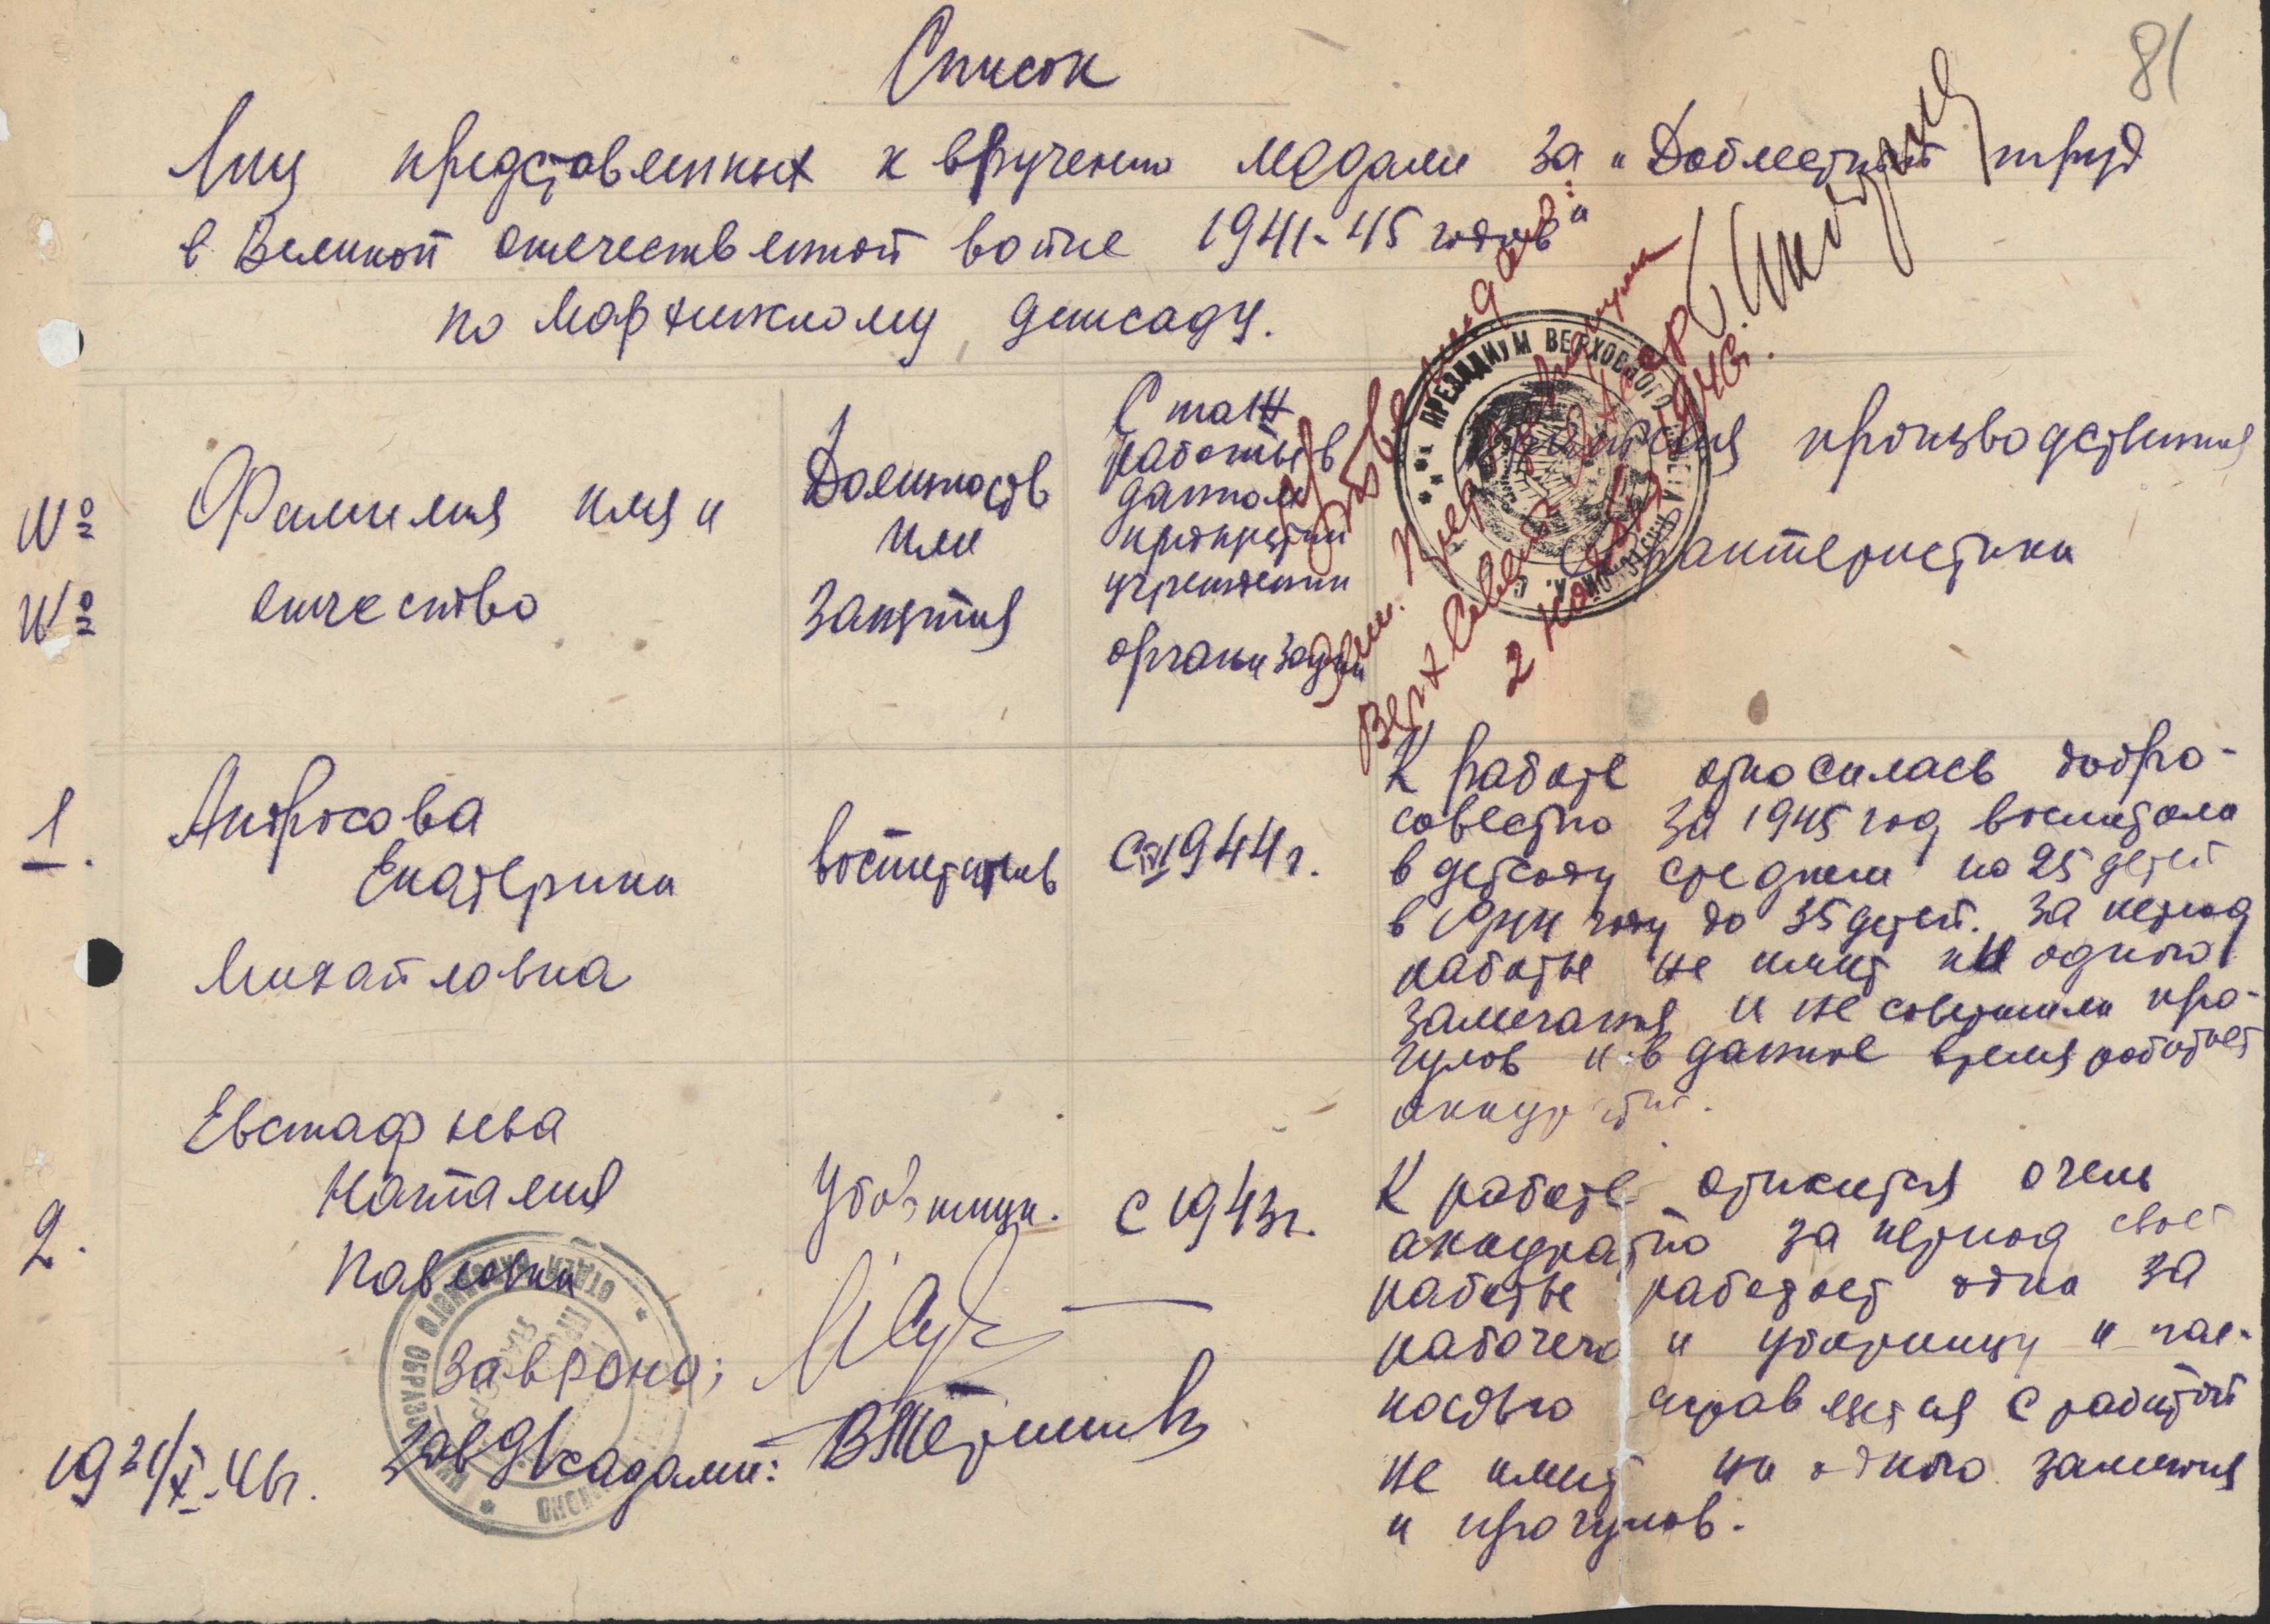 81
Список
Лиц представленных к вручению медали за „Доблестный труд
в Великой отечественной войне 1941-45 годов"
по детсаду.
Утверждаю:
Зам. Пред. Президиума
Верх Совета
2 1946г.
ПРЕЗИДИУМ ВЕРХОВНОГО СОВЕТА
№
№
Фамилия имя и
отчество
Должность
или
занятия
Стаж
работы в
данном
предприятии
учреждении
организации
Краткая производственная
характеристика
1.
Антросова
Екатерина
Михайловна
воспитатель
с 1944г.
К работе относилась добро-
совестно за 1945 год воспитала
в детсаду среднем по 25 детей
в 1944 году до 35 детей. За период
работы не имеет ни одного
замечания и не совершила про-
гулов и в данное время работает
аккуратно.
2.
Евстафьева
Наталия
Павловна
Уборщица.
с 1943г.
К работе относится очень
аккуратно за период своей
работы работает одна за
рабочего и уборщицу и пол-
ностью справляется с работой
не имеет ни одного замечания
и прогулов.
Зав РОНО;
Зав д/садами:
19 21/X-46г.
ОТДЕЛ НАРОДНОГО ОБРАЗОВАНИЯ